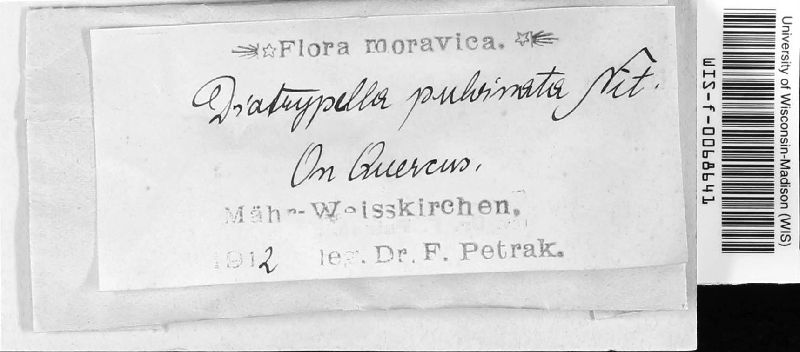 Flora moravica.
Diatrypella pulvinata Nit.
On Quercus.
Mähr-Weisskirchen,
1912 leg. Dr. F. Petrak.
University of Wisconsin-Madison (WIS)
WIS-f-0068641